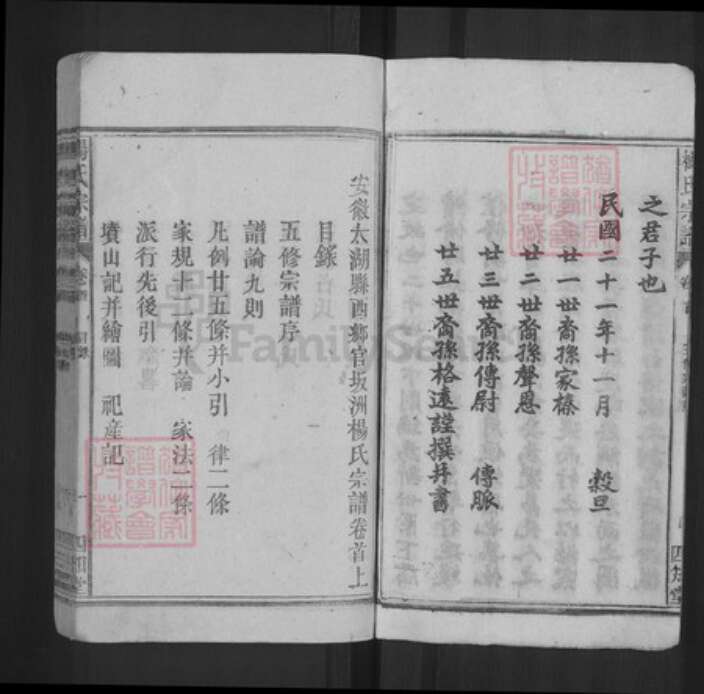 楊氏宗譜
四知堂
之君子也
民國二十一年十一月 穀旦
廿一世裔孫家榛
廿二世裔孫聲恩
廿三世裔孫傳尉 傳脈
廿五世裔孫格遠謹撰幷書
安徽太湖縣西鄉官坂洲楊氏宗譜卷首上
目錄
五修宗譜序
譜論九則
凡例廿五條并小引 律二條
家規十二條并論 家法二條
派行先後引
墳山記并繪圖 祀産記
FamilySearch